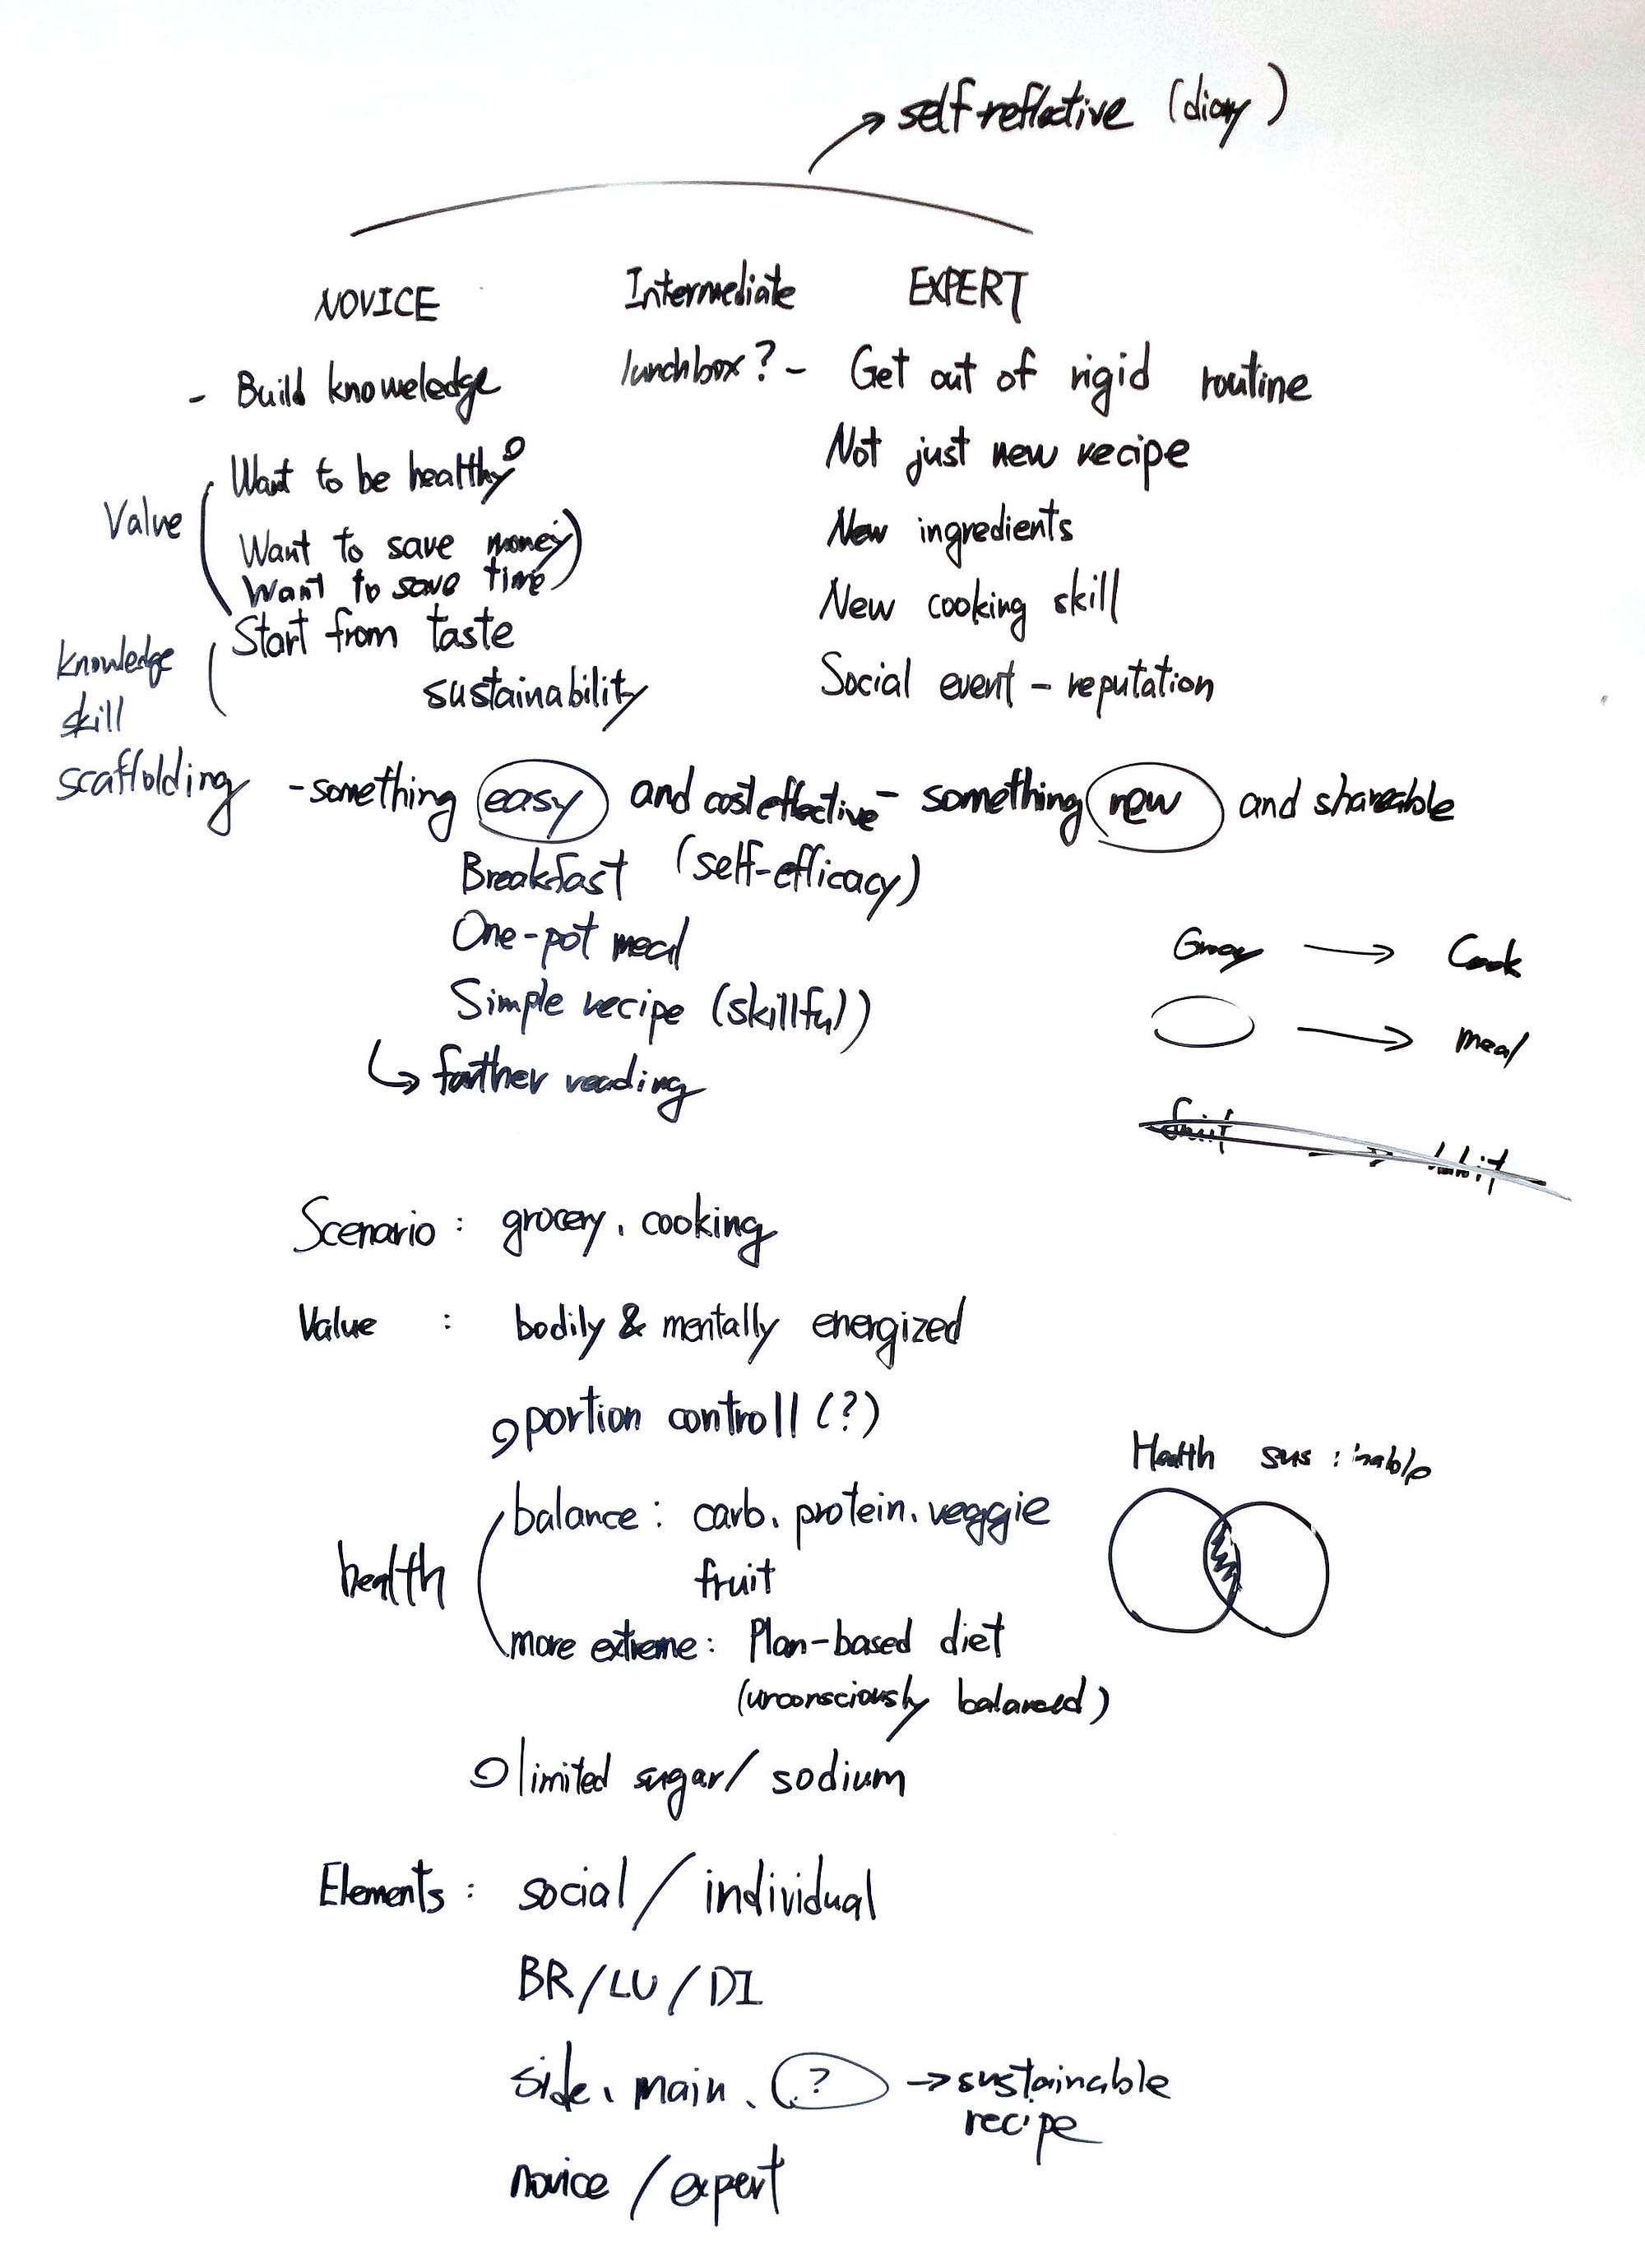 self-reflective (diary)
NOVICE Intermediate EXPERT
- Build knoweledge lunchbox? - Get out of rigid routine
Want to be healthy Not just new recipe
Value
Want to save money New ingredients
Want to save time
Start from taste New cooking skill
knowledge
skill
sustainability Social event - reputation
scaffolding - something easy and cost effective - something new and shareable
Breakfast (self-efficacy)
One-pot meal
Simple recipe (skillful)
↳ farther reading
→ Cook
→ meal
fruit → habit
Scenario : grocery, cooking
Value : bodily & mentally energized
portion controll (?)
Health
balance : carb, protein, veggie
fruit
health
more extreme : Plan-based diet
(unconsciously balanced)
limited sugar / sodium
Elements : social / individual
BR / LU / DI
side, main, ? → sustainable
recipe
novice / expert